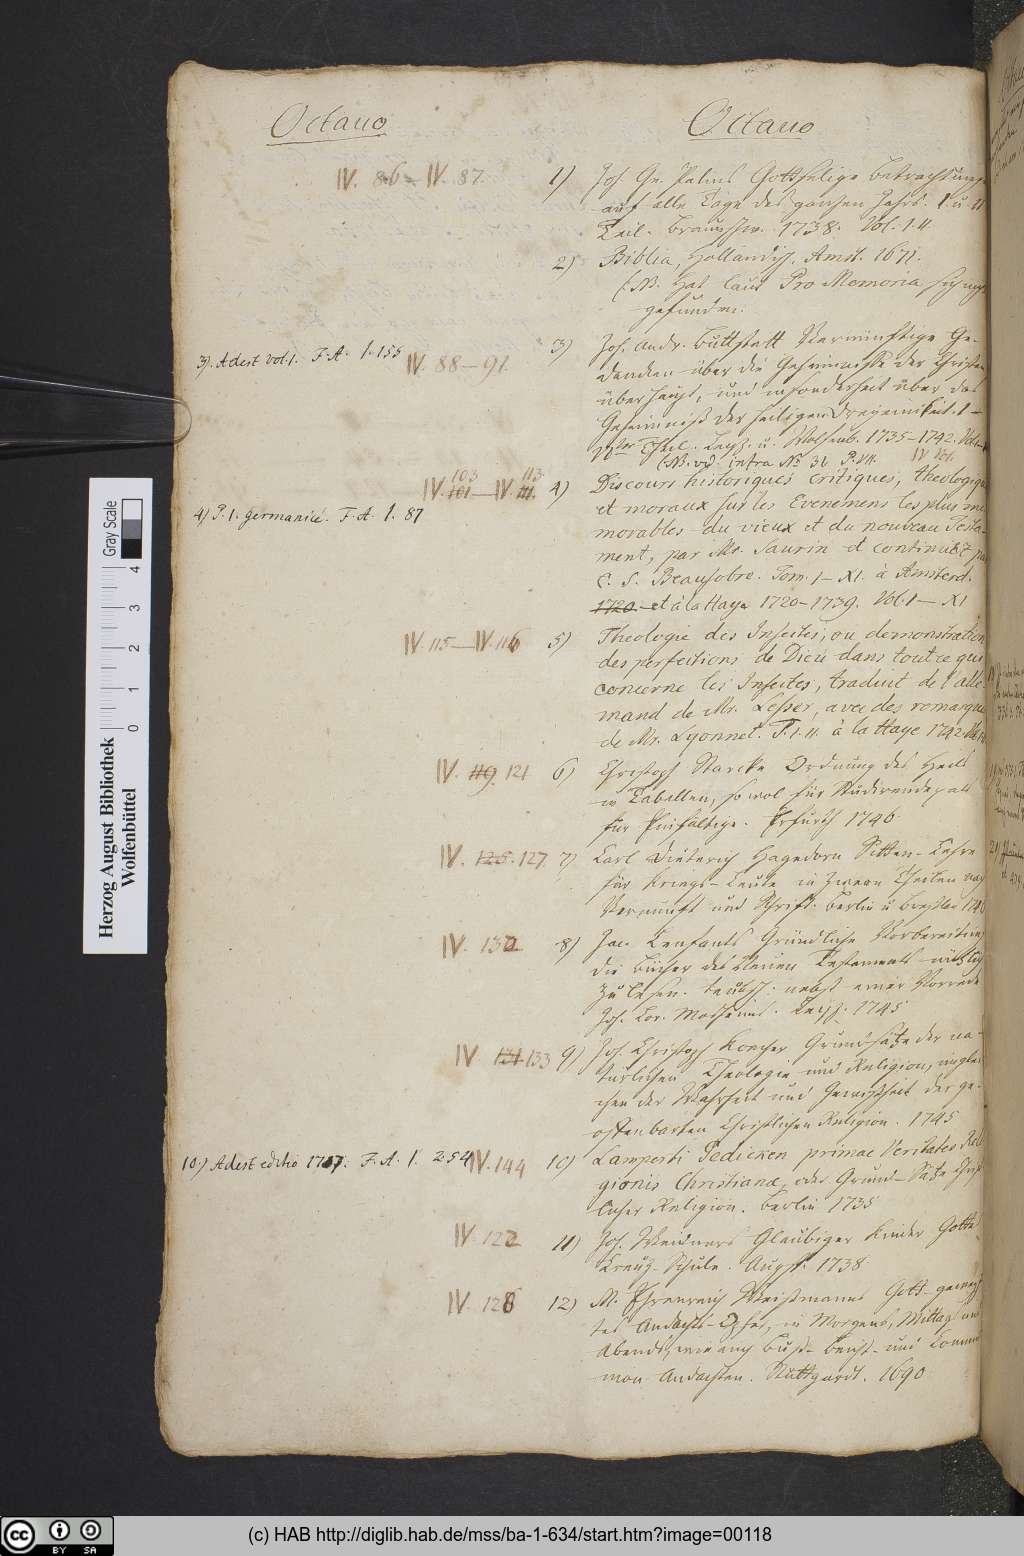 Octavo
Octavo
IV. 86 – IV. 87.
1) Joh. Ge. Palms Gottselige Betrachtungen
auf alle Tage des ganzen Jahrs. I. u. II
Teil. Braunschw. 1738. Vol. I. II.
2) Biblia, Holländis. Amst. 1671.
(NB. Hat laut Pro Memoria sich nicht
gefunden.
3). Adest vol. 1. F. A. 1. 155
IV. 88 – 91.
3) Joh. Andr. Buttstatt Vernünftige Ge-
dancken über die Geheimnisse der Christen
überhaupt, und insonderheit über das
Geheimniß der heiligen Dreyeinikeit. I –
Theil. Leipz. u. Wolfenb. 1735 – 1742. Vol.
(NB. vid. infra No 31. P. VII. IV Vol.
IV. 101 103 – IV. 111. 113.
4) P. 1. germanicè. F. A. 1. 87
4) Discours historiques critiques, theologiques
et moraux sur les Evenemens les plus me-
morables du vieux et du nouveau Testa-
ment, par Mr. Saurin et continuéz par
C. S. Beausobre. Tom. I – XI. à Amsterd.
1720 et à la Haye 1720 – 1739. Vol. I – XI
IV. 115 – IV. 116
5) Theologie des Insectes, ou demonstration
des perfections de Dieu dans tout ce qui
concerne les Insectes, traduit de l'alle-
mand de Mr. Lesser, avec des remarques
de Mr. Lyonnet. P. I. II. à la Haye 1742.
IV. 119. 121
6) Christoph Starcke Ordnung des Heils
in Tabellen, so wol für Studirende, als
für Einfältige. Erfurth 1746
IV. 125. 127
7) Carl Dieterich Hagedorn Sitten-Lehre
für Kriegs-Leute in zween Theilen nach
Vernunft und Schrift. Berlin u. Breßlau
IV. 132
8) Jac. Lenfants Gründliche Vorbereitung
die Bücher des Neuen Testaments nützlich
zu lesen. teutsch. nebst einer Vorrede
Joh. Lor. Mosheims. Leipz. 1745
IV 131 133
9) Joh. Christoph Koecher Grundsätze der na-
türlichen Theologie und Religion, inglei-
chen der Wahrheit und Gewißheit der ge-
offenbarten Christlichen Religion. 1745
10.) Adest editio 1717. F. A. 1. 254
IV. 144
10) Lamperti Gedicken primae Veritates Reli-
gionis Christianæ, oder Grund-Sätze Christ-
licher Religion. Berlin 1735
IV. 122
11) Joh. Weidners Gläubiger Kinder Gottes
Kreuz-Schule. Augsp. 1738
IV. 128
12) M. Ehrenreich Weißmanns Gott-geweih-
tes Andachts-Opfer, in Morgens, Mittag und
Abends, wie auch Buß- Beicht- und Commu-
nion Andachten. Stuttgardt. 1690
Herzog August Bibliothek
Wolfenbüttel
Gray Scale
0 1 2 3 4
cc BY SA
(c) HAB http://diglib.hab.de/mss/ba-1-634/start.htm?image=00118